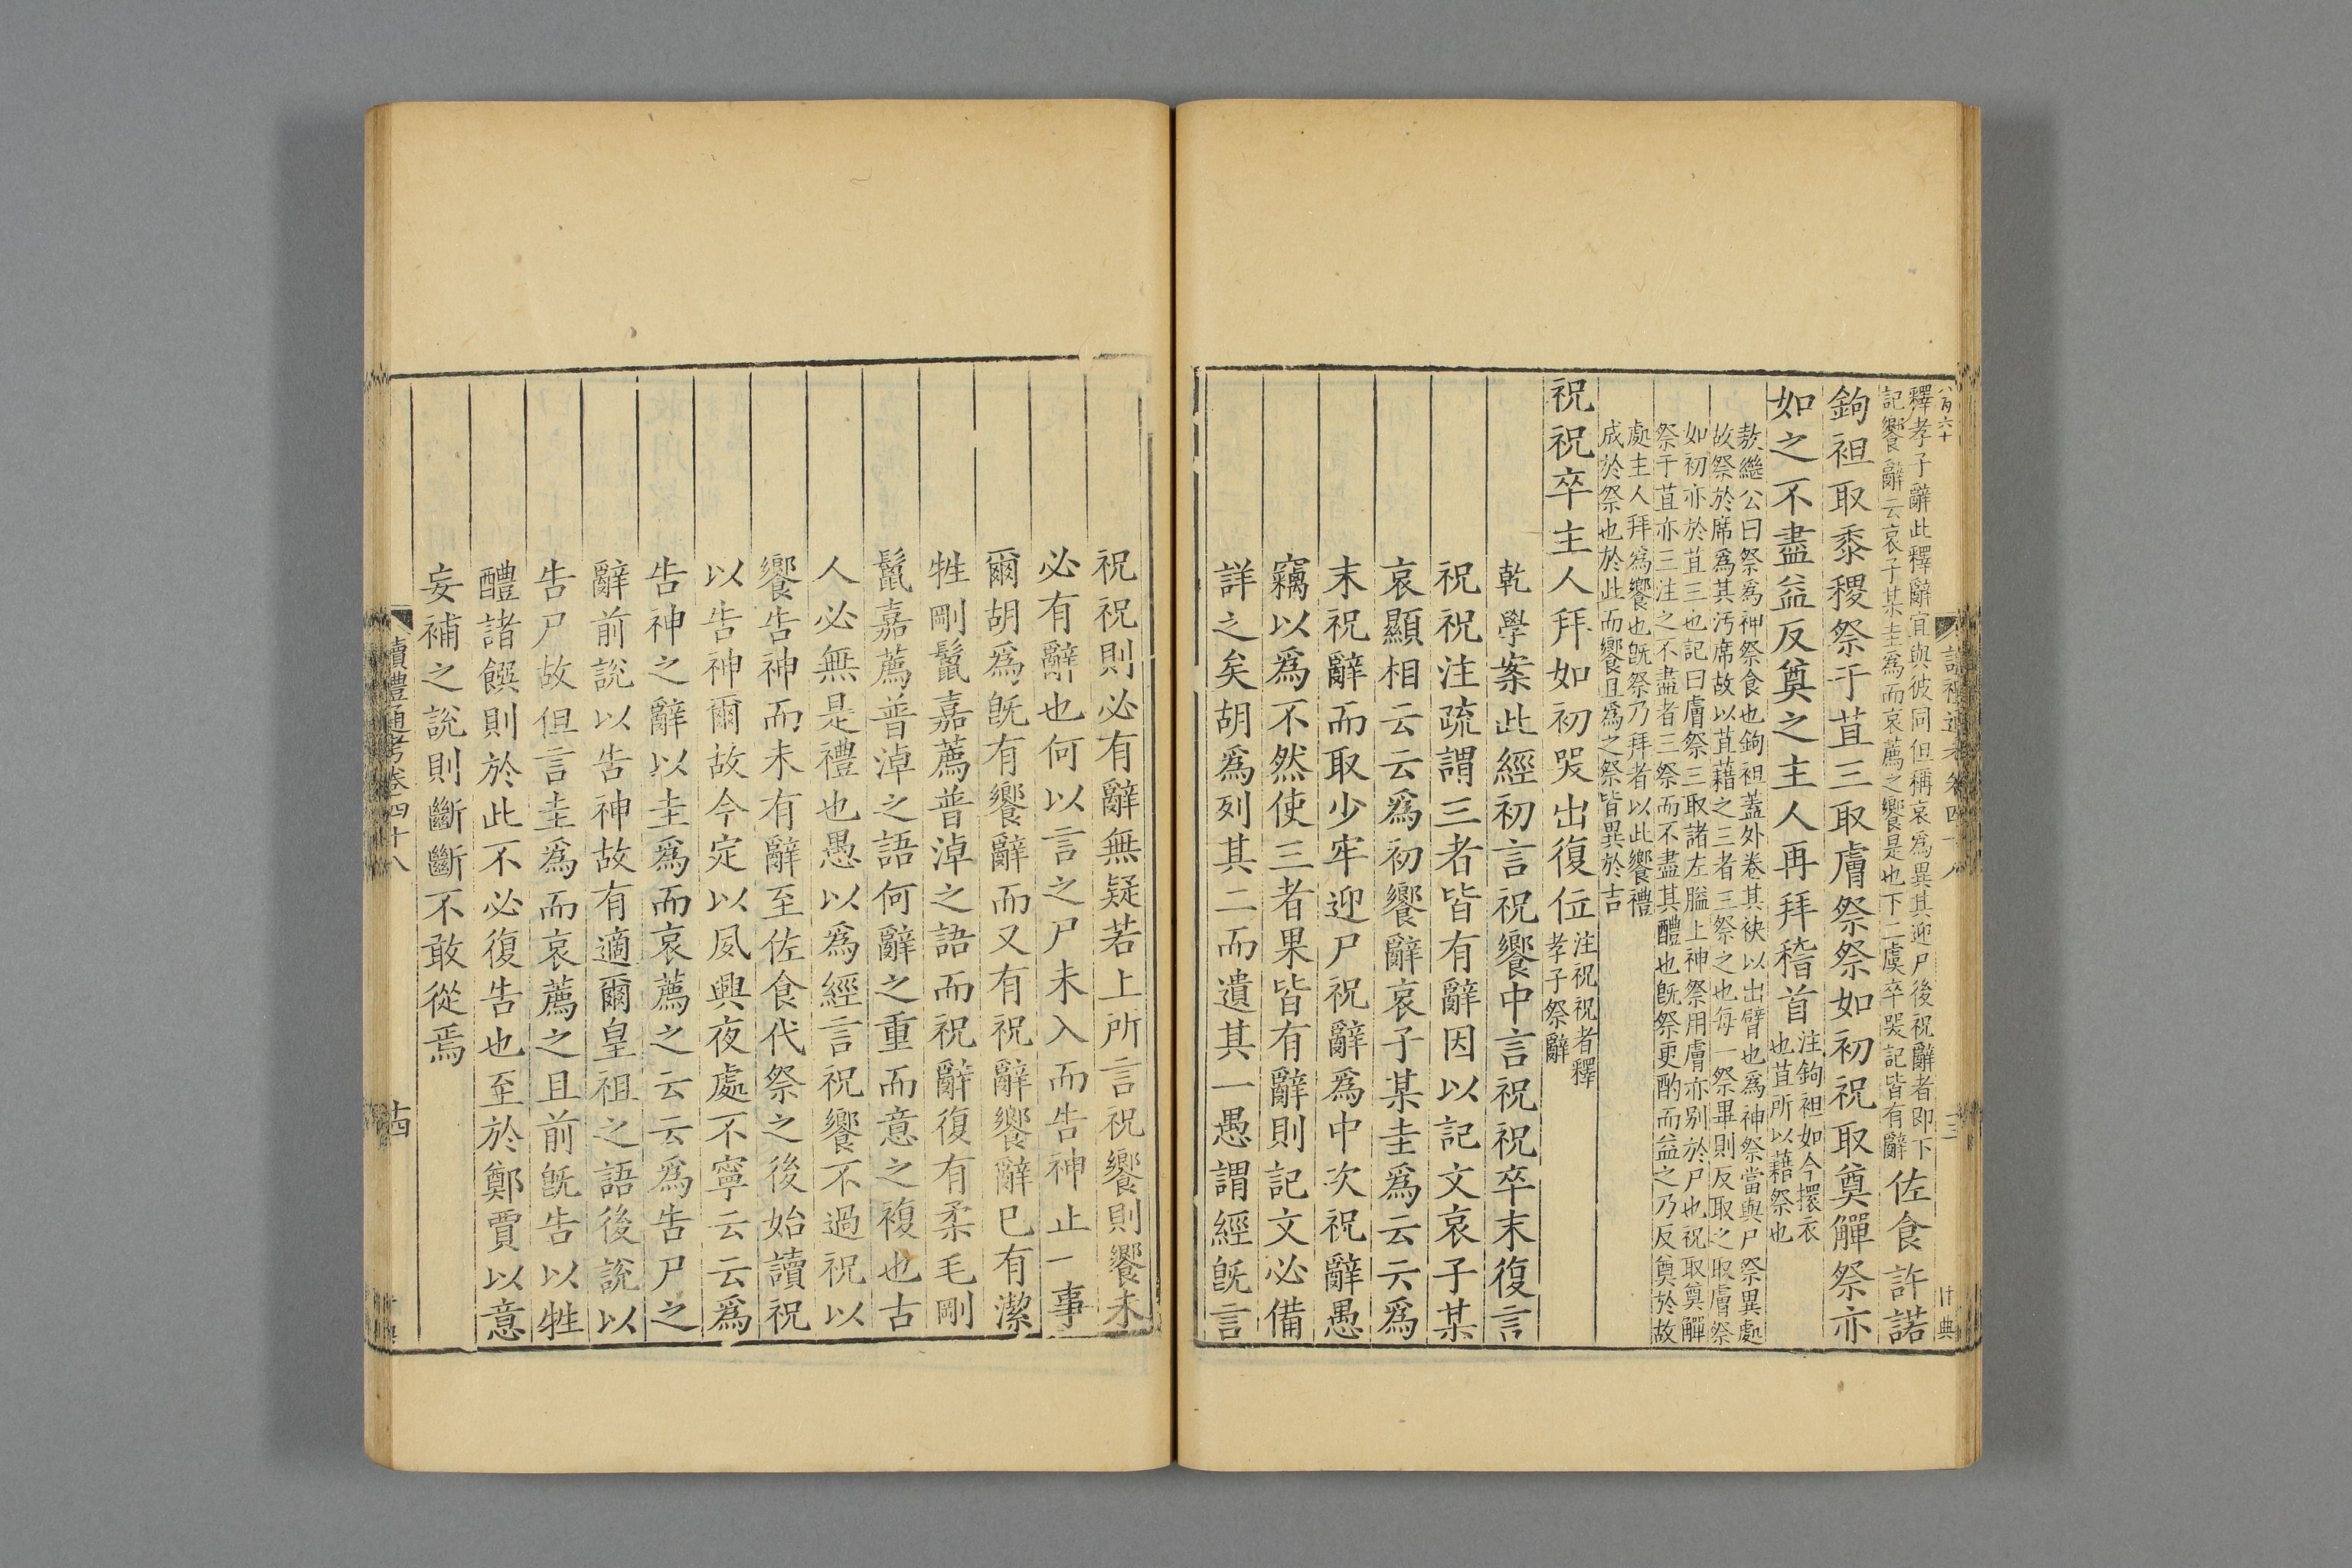 釋孝子辭此釋辭宜與彼同但稱哀爲異其迎尸後祝辭者即下
記饗辭云哀子某圭爲而哀薦之饗是也下二虞卒哭記皆有辭
佐食許諾
鉤袒取黍稷祭于苴三取膚祭祭如初祝取奠觶祭亦
如之不盡益反奠之主人再拜稽首
注鉤袒如今擐衣
也苴所以藉祭也
敖繼公曰祭爲神祭食也鉤袒蓋外卷其袂以出臂也爲神祭當與尸祭異處
故祭於席爲其汚席故以苴藉之三者三祭之也每一祭畢則反取之取膚祭
如初亦於苴三也記曰膚祭三取諸左膉上神祭用膚亦别於尸也祝取奠觶
祭于苴亦三注之不盡者三祭而不盡其醴也旣祭更酌而益之乃反奠於故
處主人拜爲饗也旣祭乃拜者以此饗禮
成於祭也於此而饗且爲之祭皆異於吉
祝祝卒主人拜如初哭出復位
注祝祝者釋
孝子祭辭
乾學案此經初言祝饗中言祝祝卒末復言
祝祝注疏謂三者皆有辭因以記文哀子某
哀顯相云云爲初饗辭哀子某圭爲云云爲
末祝辭而取少牢迎尸祝辭爲中次祝辭愚
竊以爲不然使三者果皆有辭則記文必備
詳之矣胡爲列其二而遺其一愚謂經旣言
祝祝則必有辭無疑若上所言祝饗則饗未
必有辭也何以言之尸未入而告神止一事
爾胡爲旣有饗辭而又有祝辭饗辭已有潔
牲剛鬣嘉薦普淖之語而祝辭復有柔毛剛
鬣嘉薦普淖之語何辭之重而意之複也古
人必無是禮也愚以爲經言祝饗不過祝以
饗告神而未有辭至佐食代祭之後始讀祝
以告神爾故今定以夙興夜處不寧云云爲
告神之辭以圭爲而哀薦之云云爲告尸之
辭前說以告神故有適爾皇祖之語後說以
告尸故但言圭爲而哀薦之且前旣告以牲
醴諸饌則於此不必復告也至於鄭賈以意
妄補之說則斷斷不敢從焉
讀禮通考卷四十八
十四